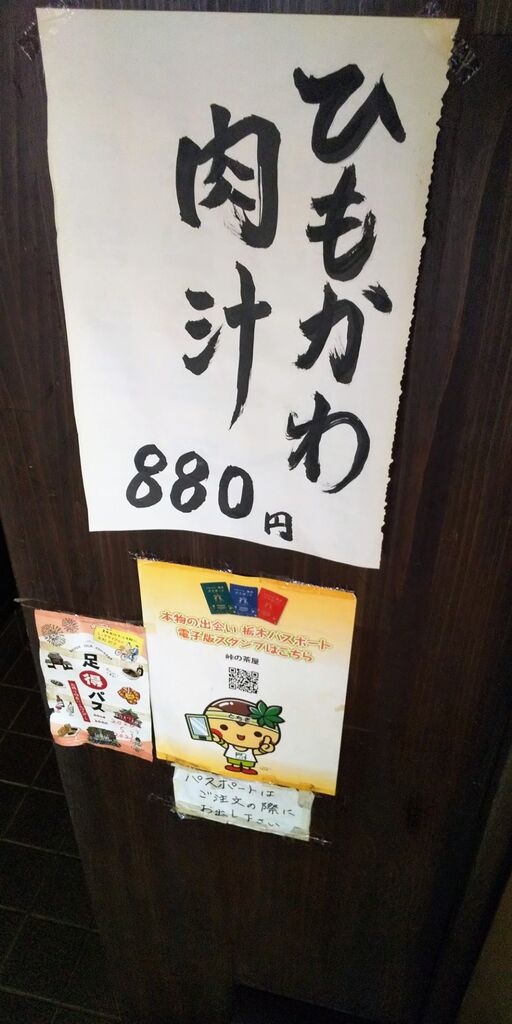 ひもかわ
肉汁
880円
本物の出会い 栃木パスポート
電子版スタンプはこちら
峠の茶屋
とちぎ
足得パス
パスポートは
ご注文の際に
お出し下さい